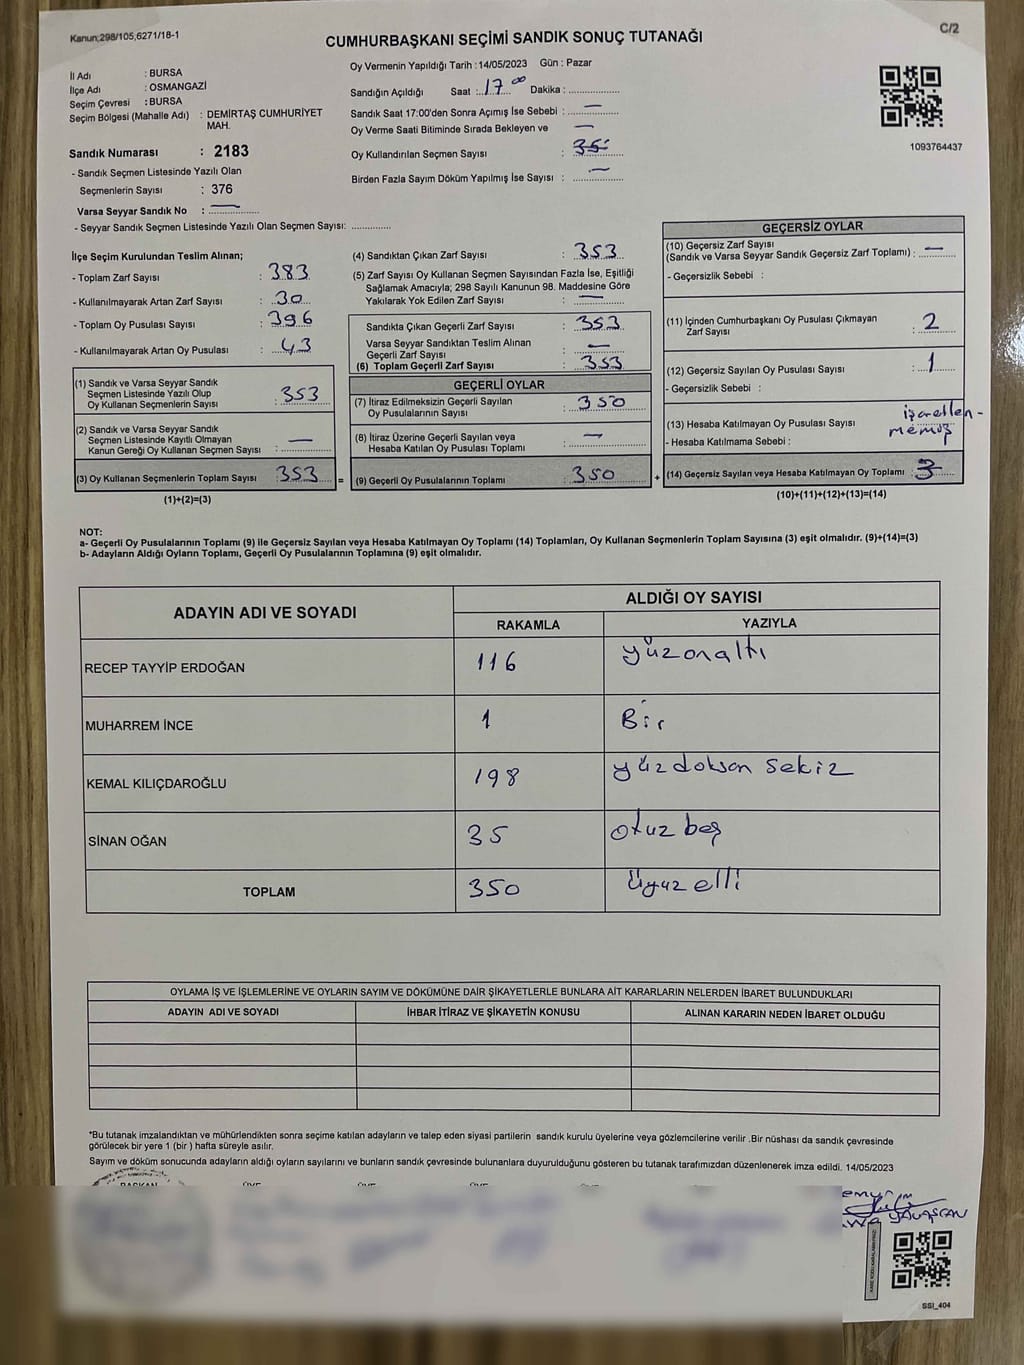 Kanun;298/105,6271/18-1
C/2
CUMHURBAŞKANI SEÇİMİ SANDIK SONUÇ TUTANAĞI
İl Adı : BURSA
İlçe Adı : OSMANGAZİ
Seçim Çevresi : BURSA
Seçim Bölgesi (Mahalle Adı) : DEMİRTAŞ CUMHURİYET
MAH.
Sandık Numarası : 2183
- Sandık Seçmen Listesinde Yazılı Olan
Seçmenlerin Sayısı : 376
Varsa Seyyar Sandık No : —
- Seyyar Sandık Seçmen Listesinde Yazılı Olan Seçmen Sayısı: ..............
Oy Vermenin Yapıldığı Tarih : 14/05/2023 Gün : Pazar
Sandığın Açıldığı Saat : 17 00 Dakika : ..................
Sandık Saat 17:00'den Sonra Açımış İse Sebebi : —
Oy Verme Saati Bitiminde Sırada Bekleyen ve —
Oy Kullandırılan Seçmen Sayısı :
Birden Fazla Sayım Döküm Yapılmış İse Sayısı : —
1093764437
İlçe Seçim Kurulundan Teslim Alınan;
- Toplam Zarf Sayısı : 383
- Kullanılmayarak Artan Zarf Sayısı : 30
- Toplam Oy Pusulası Sayısı : 396
- Kullanılmayarak Artan Oy Pusulası : 43
(1) Sandık ve Varsa Seyyar Sandık
Seçmen Listesinde Yazılı Olup
Oy Kullanan Seçmenlerin Sayısı : 353
(2) Sandık ve Varsa Seyyar Sandık
Seçmen Listesinde Kayıtlı Olmayan
Kanun Gereği Oy Kullanan Seçmen Sayısı : —
(3) Oy Kullanan Seçmenlerin Toplam Sayısı : 353
(1)+(2)=(3)
=
(4) Sandıktan Çıkan Zarf Sayısı : 353
(5) Zarf Sayısı Oy Kullanan Seçmen Sayısından Fazla İse, Eşitliği
Sağlamak Amacıyla; 298 Sayılı Kanunun 98. Maddesine Göre
Yakılarak Yok Edilen Zarf Sayısı : —
Sandıkta Çıkan Geçerli Zarf Sayısı : 353
Varsa Seyyar Sandıktan Teslim Alınan
Geçerli Zarf Sayısı : —
(6) Toplam Geçerli Zarf Sayısı : 353
GEÇERLİ OYLAR
(7) İtiraz Edilmeksizin Geçerli Sayılan
Oy Pusulalarının Sayısı : 350
(8) İtiraz Üzerine Geçerli Sayılan veya
Hesaba Katılan Oy Pusulası Toplamı : —
(9) Geçerli Oy Pusulalarının Toplamı : 350
+
GEÇERSİZ OYLAR
(10) Geçersiz Zarf Sayısı
(Sandık ve Varsa Seyyar Sandık Geçersiz Zarf Toplamı) : —
- Geçersizlik Sebebi :
(11) İçinden Cumhurbaşkanı Oy Pusulası Çıkmayan
Zarf Sayısı : 2
(12) Geçersiz Sayılan Oy Pusulası Sayısı : 1
- Geçersizlik Sebebi :
işaretlen-
memiş
(13) Hesaba Katılmayan Oy Pusulası Sayısı
- Hesaba Katılmama Sebebi :
(14) Geçersiz Sayılan veya Hesaba Katılmayan Oy Toplamı : 3
(10)+(11)+(12)+(13)=(14)
NOT:
a- Geçerli Oy Pusulalarının Toplamı (9) ile Geçersiz Sayılan veya Hesaba Katılmayan Oy Toplamı (14) Toplamları, Oy Kullanan Seçmenlerin Toplam Sayısına (3) eşit olmalıdır. (9)+(14)=(3)
b- Adayların Aldığı Oyların Toplamı, Geçerli Oy Pusulalarının Toplamına (9) eşit olmalıdır.
ADAYIN ADI VE SOYADI ALDIĞI OY SAYISI
RAKAMLA YAZIYLA
RECEP TAYYİP ERDOĞAN 116 yüzonaltı
MUHARREM İNCE 1 Bir
KEMAL KILIÇDAROĞLU 198 yüzdoksan sekiz
SİNAN OĞAN 35 otuz beş
TOPLAM 350 üyüz elli
OYLAMA İŞ VE İŞLEMLERİNE VE OYLARIN SAYIM VE DÖKÜMÜNE DAİR ŞİKAYETLERLE BUNLARA AİT KARARLARIN NELERDEN İBARET BULUNDUKLARI
ADAYIN ADI VE SOYADI İHBAR İTİRAZ VE ŞİKAYETİN KONUSU ALINAN KARARIN NEDEN İBARET OLDUĞU
*Bu tutanak imzalandıktan ve mühürlendikten sonra seçime katılan adayların ve talep eden siyasi partilerin sandık kurulu üyelerine veya gözlemcilerine verilir .Bir nüshası da sandık çevresinde
görülecek bir yere 1 (bir ) hafta süreyle asılır.
Sayım ve döküm sonucunda adayların aldığı oyların sayılarını ve bunların sandık çevresinde bulunanlara duyurulduğunu gösteren bu tutanak tarafımızdan düzenlenerek imza edildi. 14/05/2023
BAŞKAN ÜYE ÜYE ÜYE
SSI_404